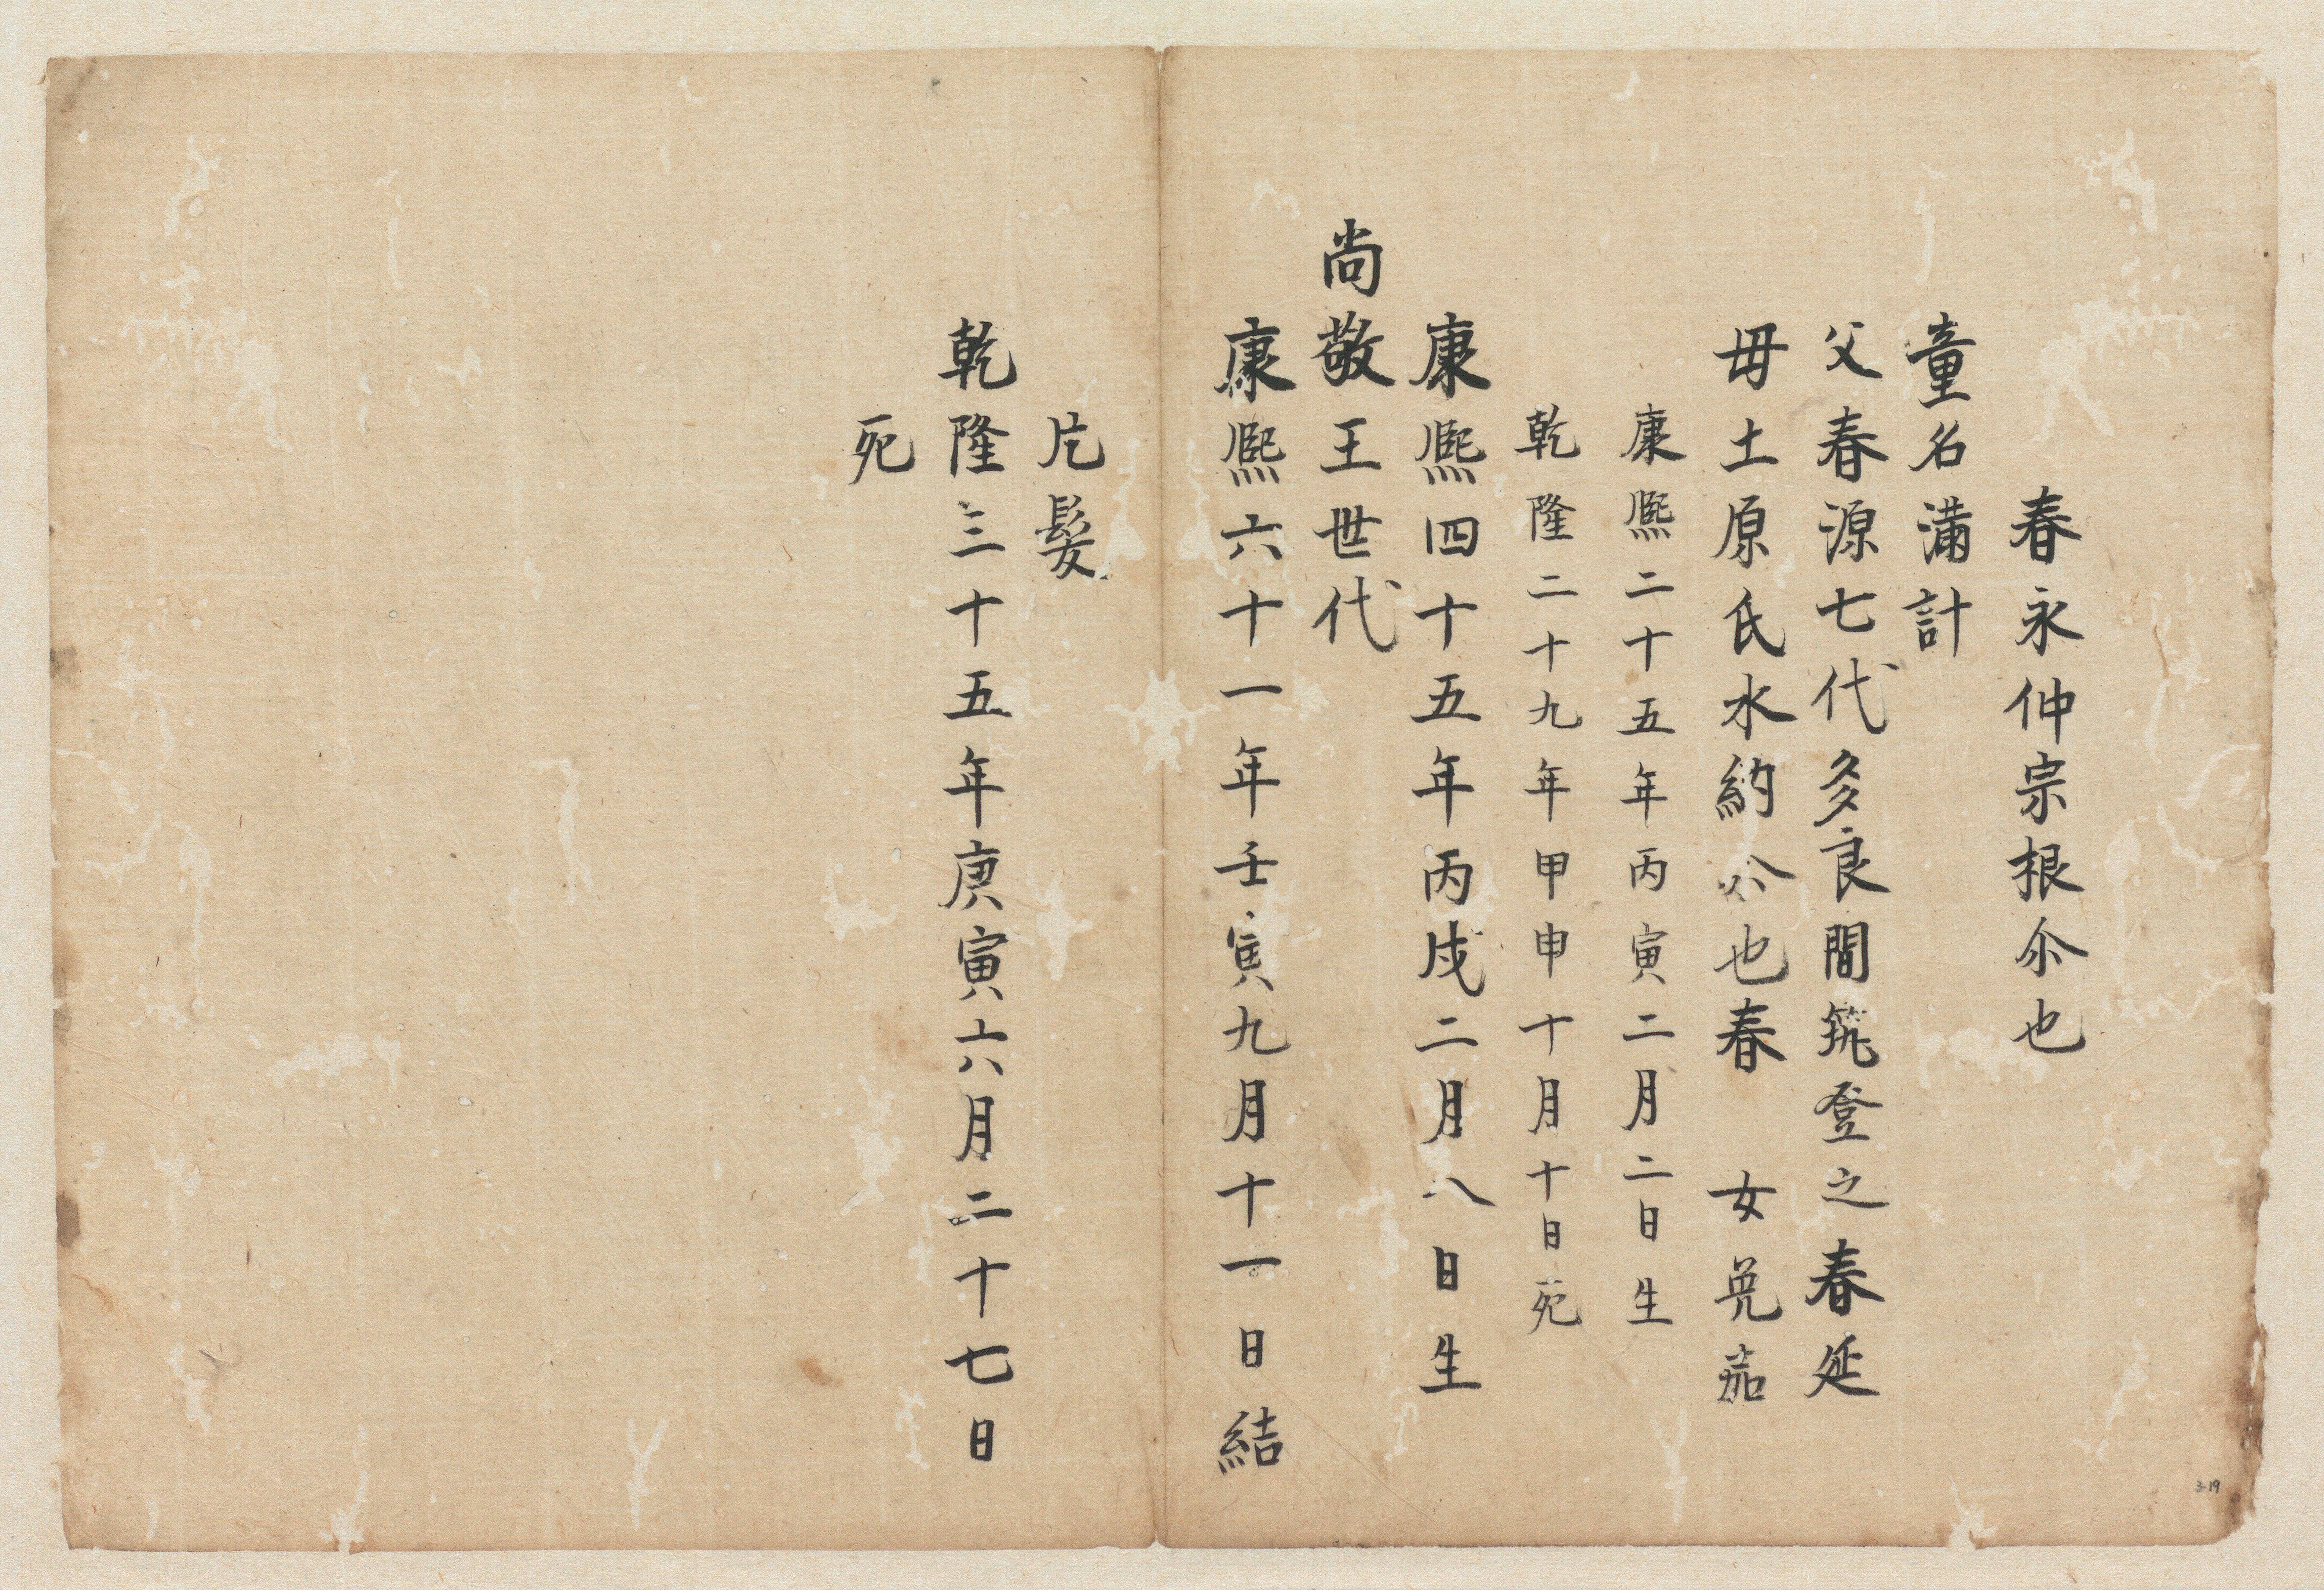 春永仲宗根尒也
童名満計
父春源七代多良間筑登之春延
毋土原氏水納尒也春　女兒茄
康熙二十五年丙寅二月二日生
乾隆二十九年甲申十月十日死
康熙四十五年丙戌二月八日生
尚敬王世代
康熙六十一年壬寅九月十一日結
片髮
乾隆三十五年庚寅六月二十七日
死
3-19